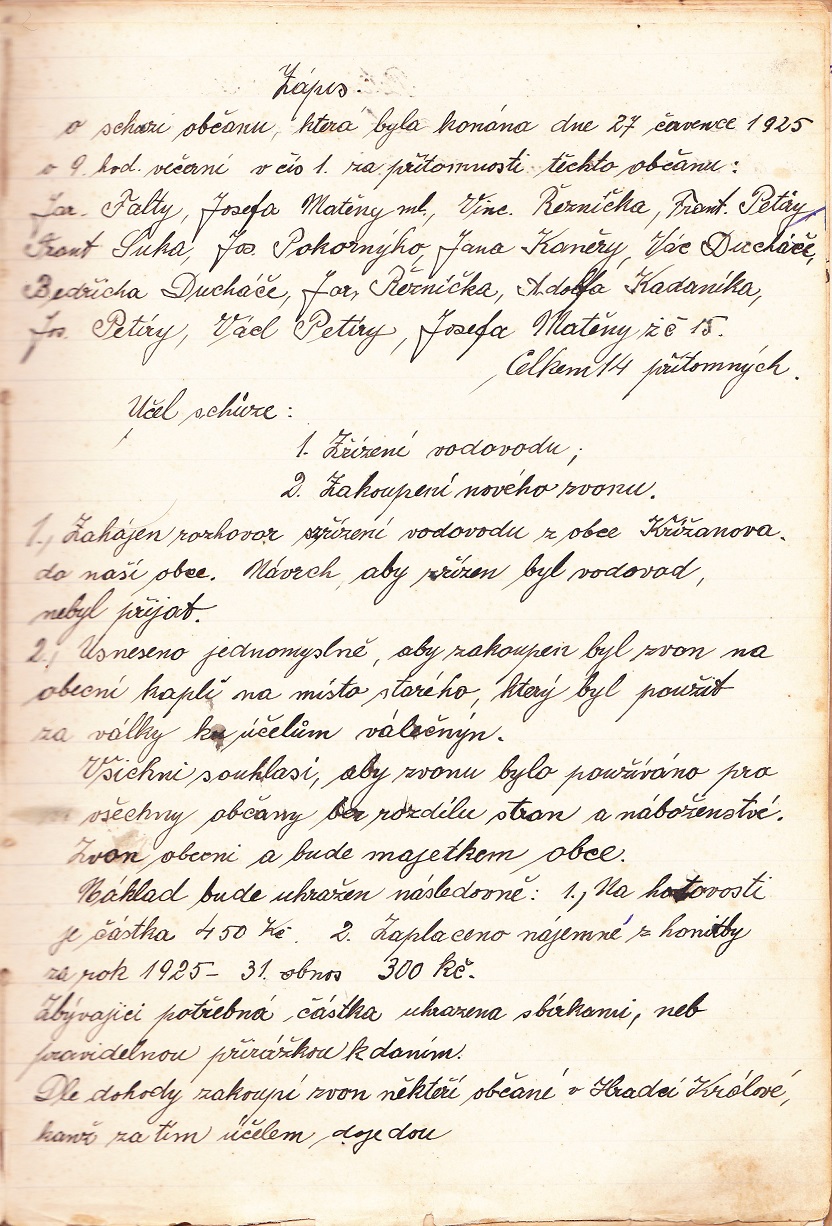 Zápis.
o schůzi občanu, která byla konána dne 27 července 1925
o 9. hod. večerní v čís 1. za přítomnosti těchto občanu:
Jar. Falty, Josefa Matěny ml., Vinc. Řezníčka, Frant. Petiry
Frant Suka, Jos. Pokornýho, Jana Kaněry, Vác Ducháče,
Bedřicha Ducháče, Jar. Řezníčka, Adolfa Kadaníka,
Jos. Petiry, Václ Petiry, Josefa Matěny z č 15.
Celkem 14 přítomných.
Účel schůze:
1. Zřízení vodovodu;
2. Zakoupení nového zvonu.
1., Zahájen rozhovor zřízení vodovodu z obce Křižanova.
do naší obce. Návrch, aby zřízen byl vodovod,
nebyl přijat.
2., Usneseno jednomyslně, aby zakoupen byl zvon na
obecní kapli na místo starého, který byl použit
za války ku účelům válečnýn.
Všichni souhlasí, aby zvonu bylo používáno pro
všechny občany bez rozdílu stran a náboženství.
Zvon obecni a bude majetkem obce.
Náklad bude uhražen následovně: 1., Na hotovosti
je částka 450 Kč. 2. Zaplaceno nájemné z honitby
za rok 1925 - 31. obnos 300 kč.
Zbývajici potřebná částka uhrazena sbírkami, neb
pravidelnou přirážkou k daním.
Dle dohody zakoupí zvon někteří občané v Hradci Králové,
kamž za tím účelem dojedou